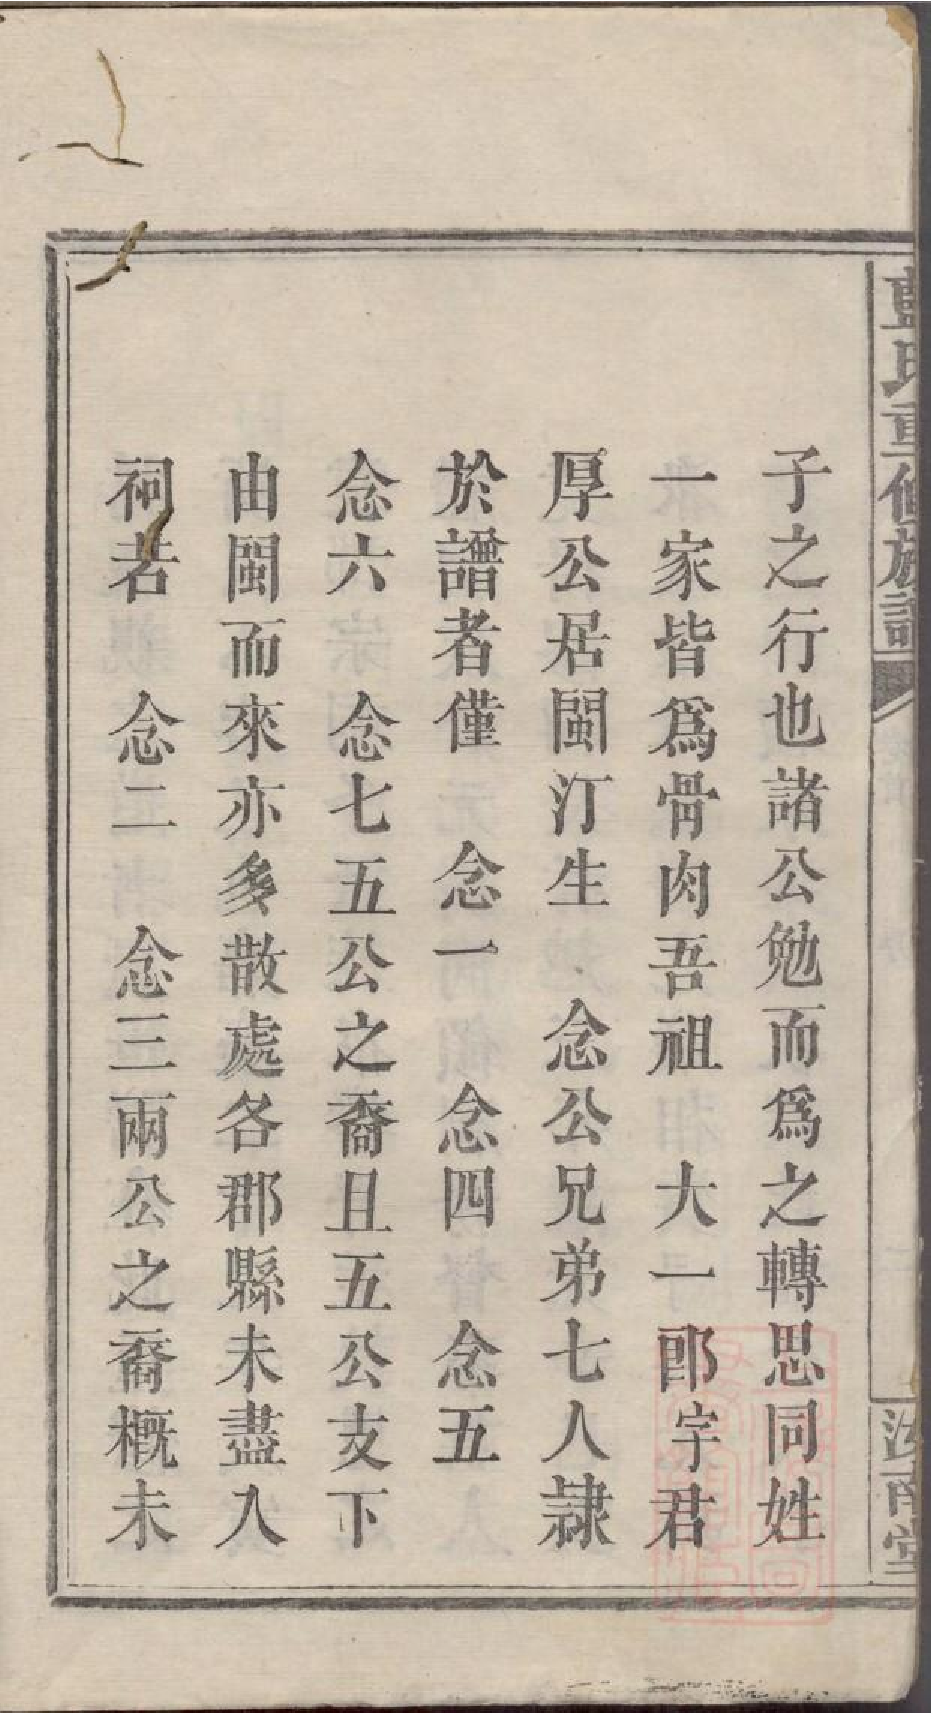 藍氏重修族譜
汝南堂
子之行也諸公勉而爲之轉思同姓
一家皆爲骨肉吾祖 大一郎字君
厚公居閩汀生 念公兄弟七人隷
於譜者僅 念一 念四 念五
念六 念七五公之裔且五公支下
由閩而來亦多散處各郡縣未盡入
祠若 念二 念三兩公之裔槪未